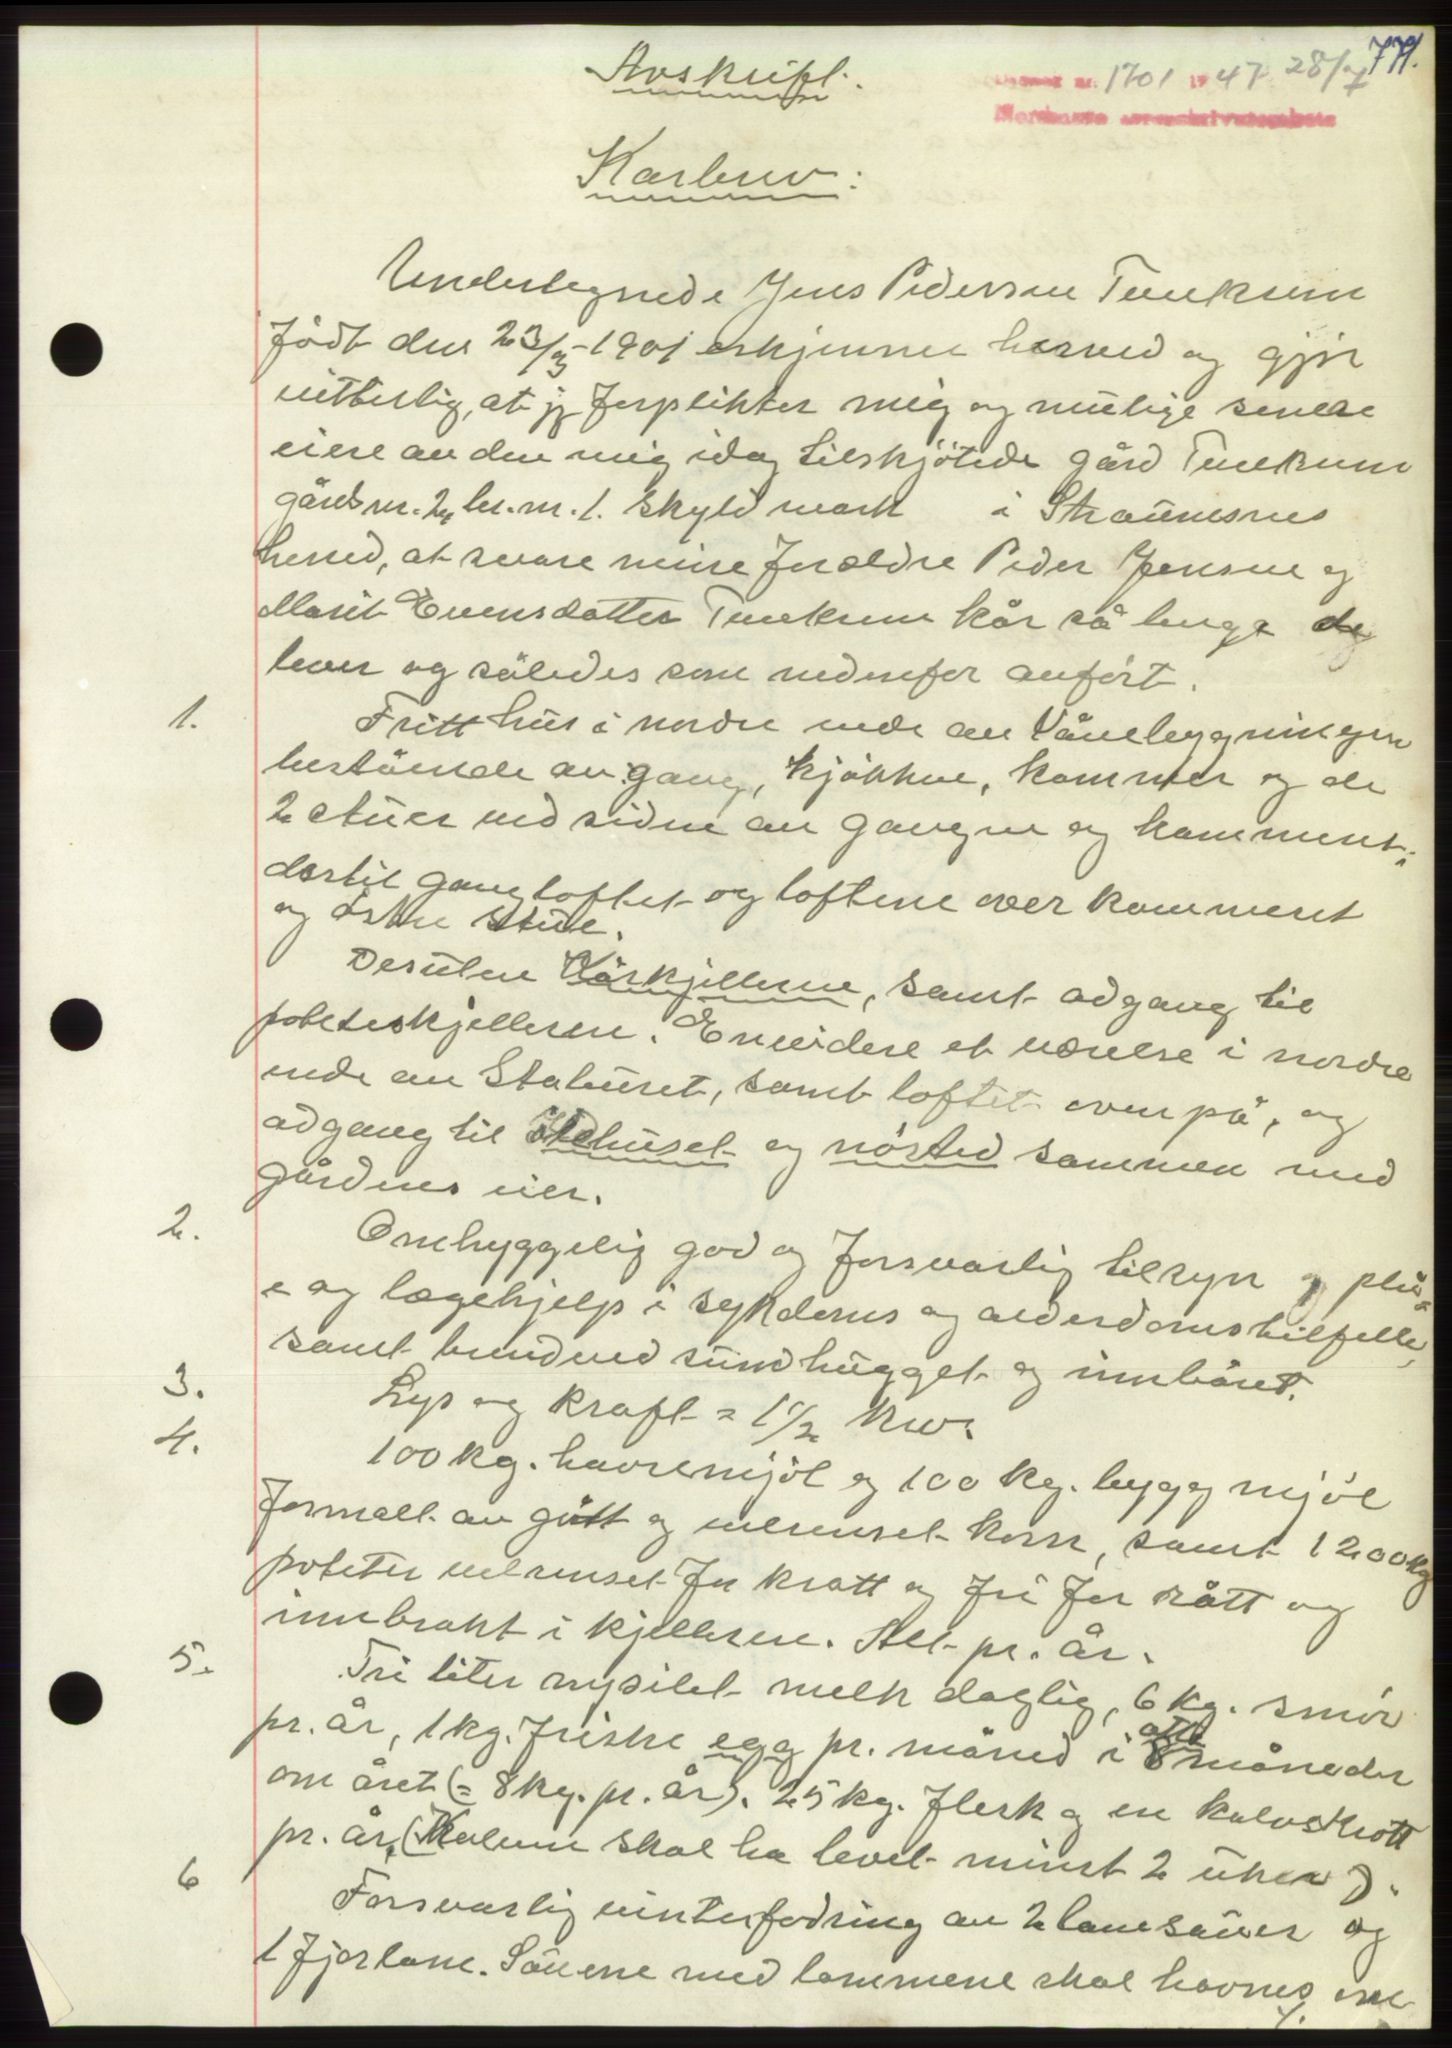 771.
Avskrift.
1701 1947 28/7
Nordmøre sorenskriverembete
Karbrev:
Undertegnede Jens Pedersen
født den 23/3-1901 erkjenner herved og gjør
vitterlig, at jeg forplikter mig og mulige senere
eiere av den mig idag tilskjøtede gård
gårdsnr. 24 br.nr. 1. skyld mark i Straumsnes
herred, at svare mine foreldre Peder Jensen og
Marit Evensdatter kår så lenge de
lever og således som nedenfor anført.
1. Fritt hus i nordre ende av Vånebygningen
bestående av: gang, kjøkken, kammer og de
2 stuer ved siden av gangen og kammeret;
dertil gangloftet og loftene over kammeret
og østre stue.
Desuten Kårkjelleren, samt adgang til
poteteskjelleren. Envidere et værelse i nordre
ende av Staburet, samt loftet oven på, og
adgang til ildhuset og nøsted sammen med
gårdens eier.
2. Omhyggelig god og forsvarlig tilsyn og plei-
e og lægehjelp i sykdoms og alderdomstilfelle,
samt brendeved småhugget og innbåret.
3. Lys og kraft = 1 1/2 kw.
4. 100 kg. havremjøl og 100 kg. byggmjøl
formalt av gått og velrenset korn, samt 1200 kg
poteter velrenset for kratt og fri for rått og
innbrakt i kjelleren. Alt pr. år.
5. Tri liter nysilet melk daglig, 6 kg. smør
pr. år, 1 kg. friske egg pr. måned i åtte 8 måneder
om året (= 8 kg. pr. år). 25 kg. flesk og en kalvskrott
pr. år, (Kalven skal ha levet minst 2 uker).
6 Forsvarlig vinterfodring av 2 lamsauer og
1 fjorlam. Sauene med lammene skal havnes om